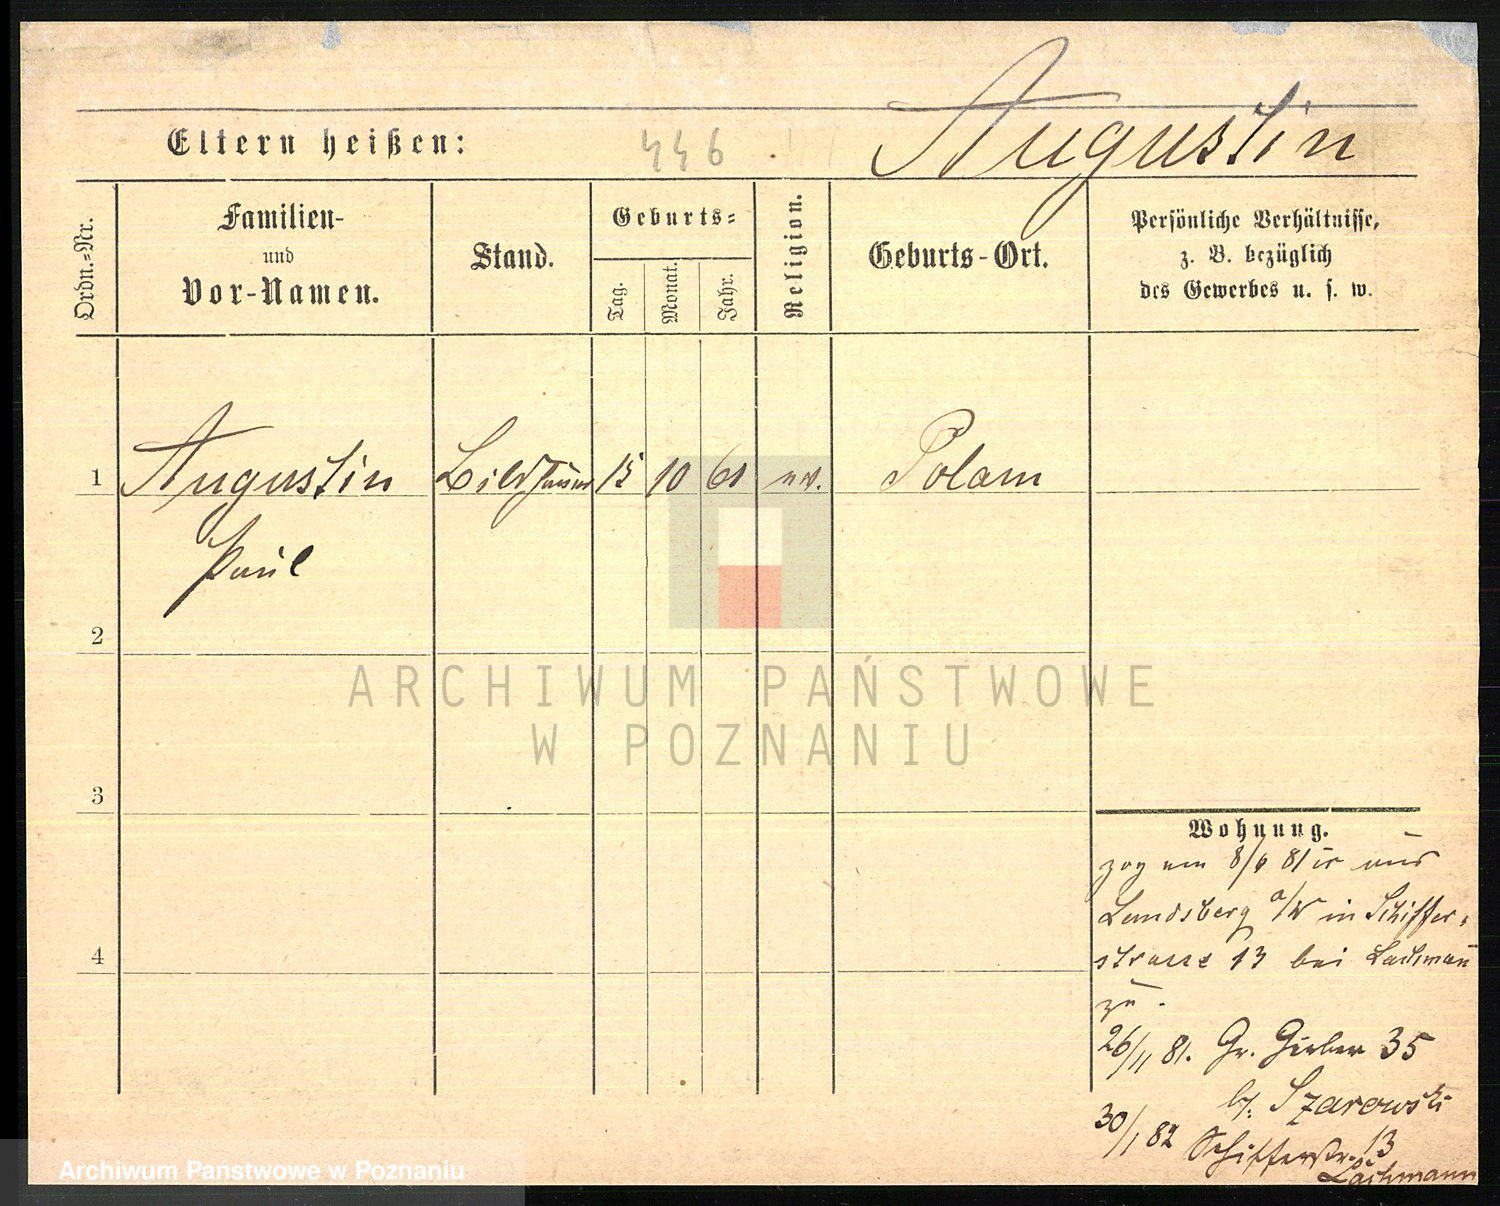 Augustin
Eltern heißen: 446
Ordn.-Nr.
Familien-
und
Vor-Namen.
Stand.
Geburts-
Tag.
Monat.
Jahr.
Religion.
Geburts-Ort.
Persönliche Verhältnisse,
z. B. bezüglich
des Gewerbes u. s. w.
1 Augustin Bildhauer 15 10 61 ev.
Paul
2
3
4
Wohnung.
zog am 81 er aus
Landsberg a/W in Schiffer-
strasse 13 bei Lachmann
zu.
26/11 81. Gr. Gerber 35
b. Szarowski
30/1 82 Schifferstr. 13
Lachmann
ARCHIWUM PAŃSTWOWE
W POZNANIU
Archiwum Państwowe w Poznaniu